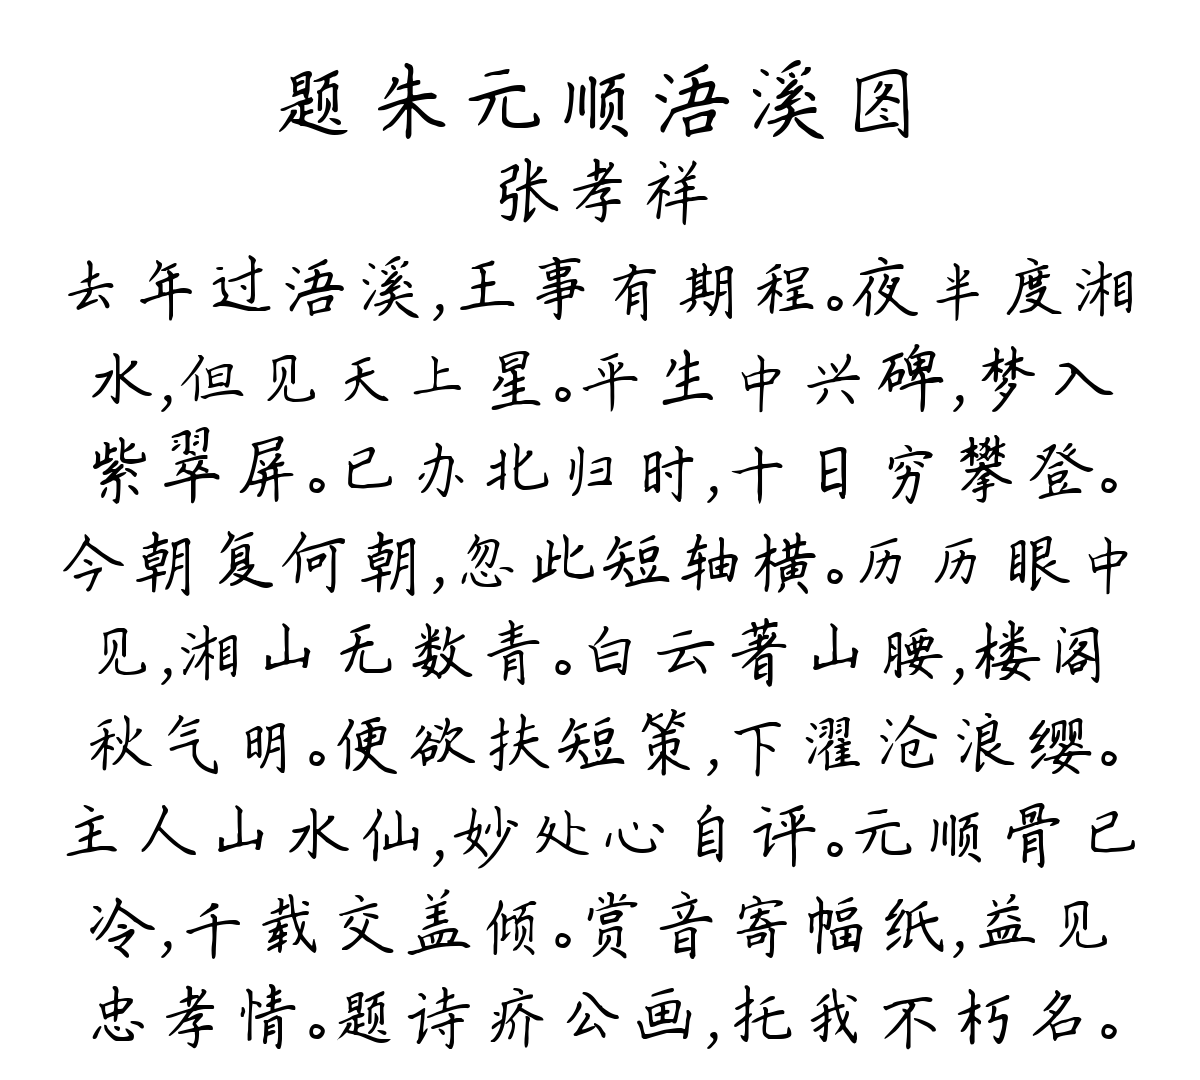 题朱元顺浯溪图
张孝祥
去年过浯溪,王事有期程。夜半度湘
水,但见天上星。平生中兴碑,梦入
紫翠屏。已办北归时,十日穷攀登。
今朝复何朝,忽此短轴横。历历眼中
见,湘山无数青。白云著山腰,楼阁
秋气明。便欲扶短策,下濯沧浪缨。
主人山水仙,妙处心自评。元顺骨已
冷,千载交盖倾。赏音寄幅纸,益见
忠孝情。题诗疥公画,托我不朽名。